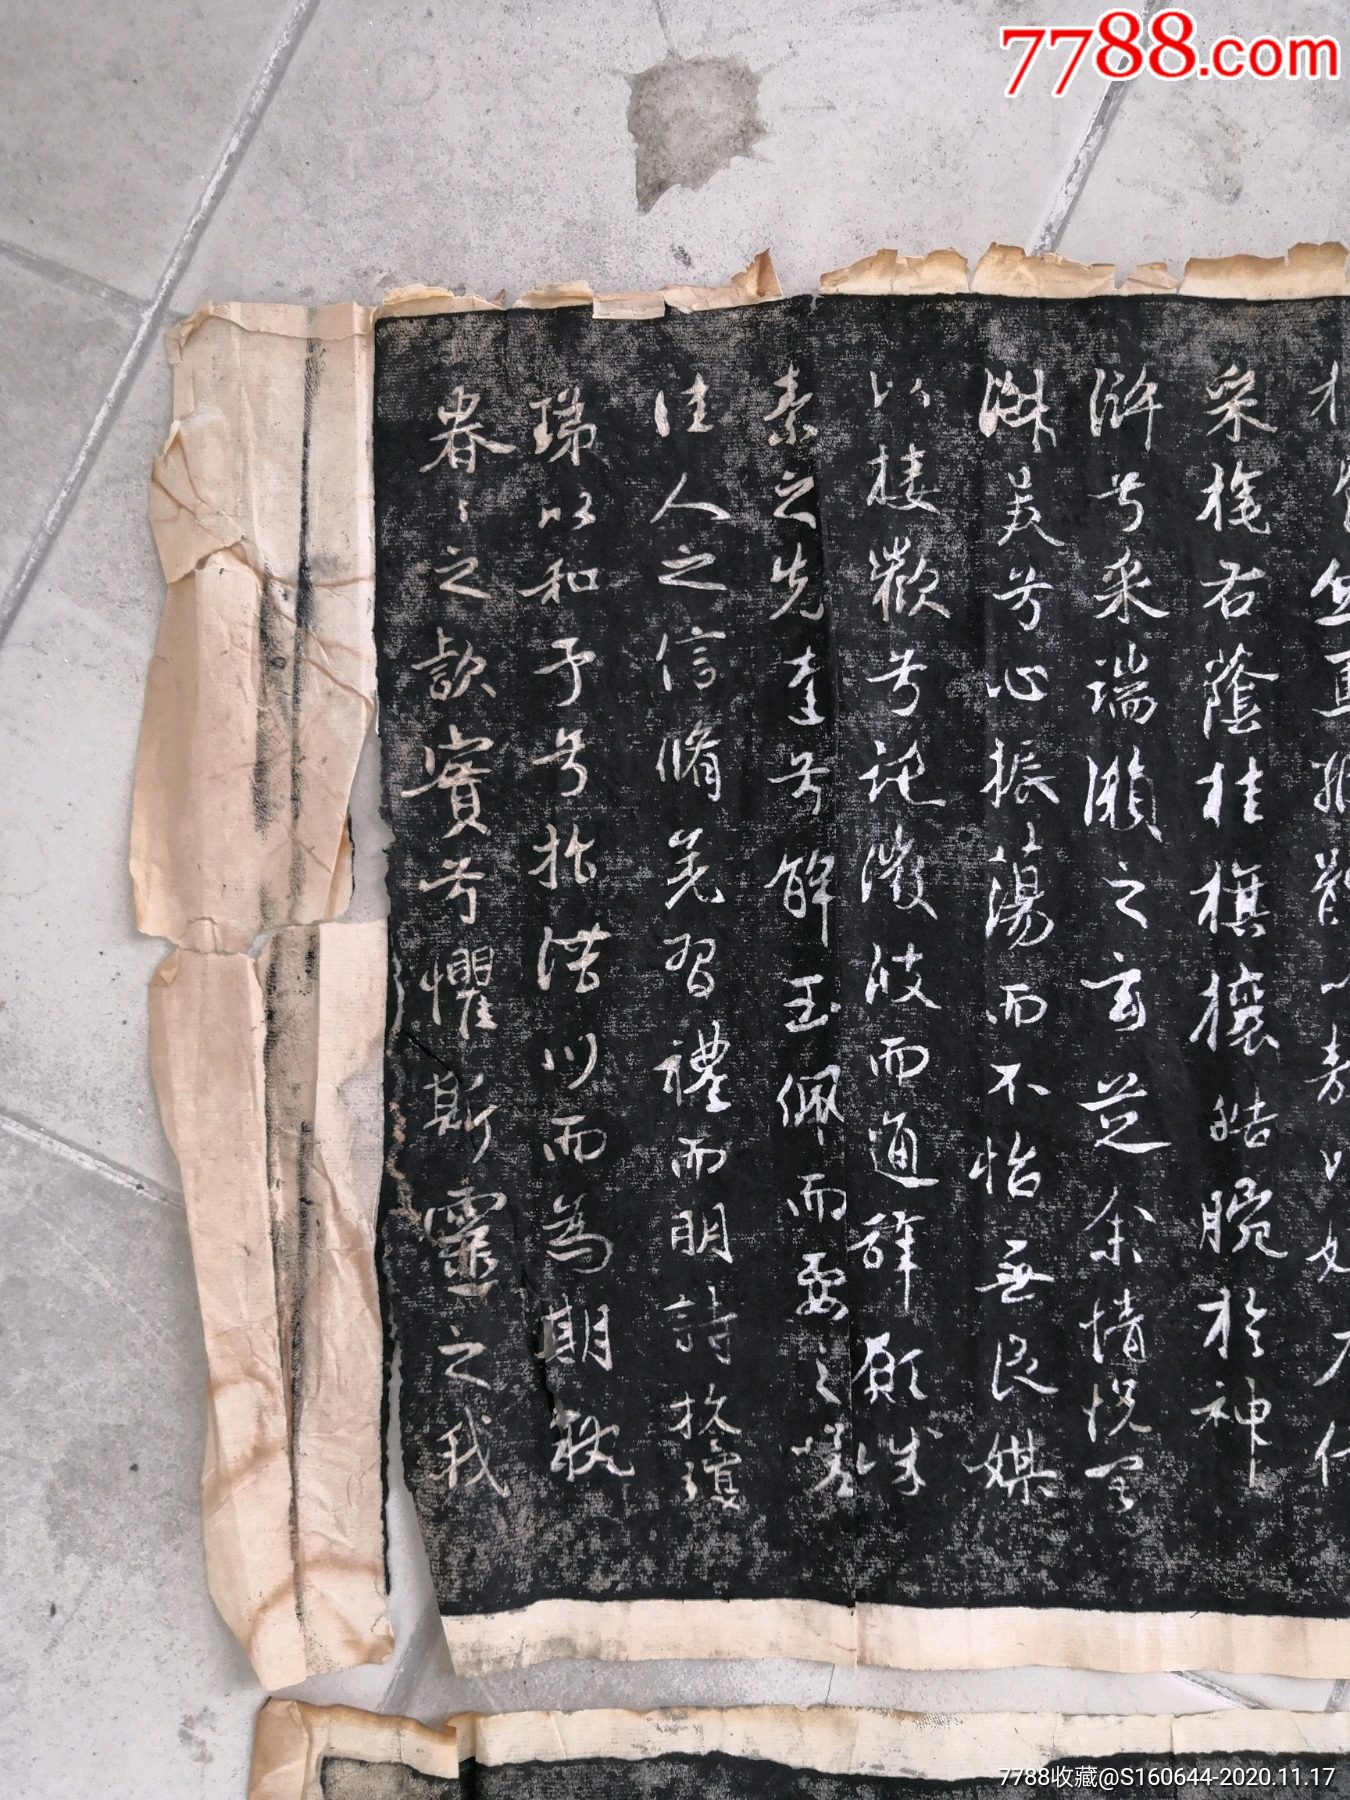 7788.com
體以遨以嬉左倚
采旄右蔭桂旗攘皓腕於神
滸兮采湍瀨之玄芝余情悅其
淑美兮心振蕩而不怡無良媒
以接歡兮託微波而通辭願誠
素之先達兮解玉佩而要之嗟
佳人之信脩羌習禮而明詩抗瓊
珶以和予兮指潛川而為期執
眷〻之款實兮懼斯靈之我
7788收藏@S160644-2020.11.17